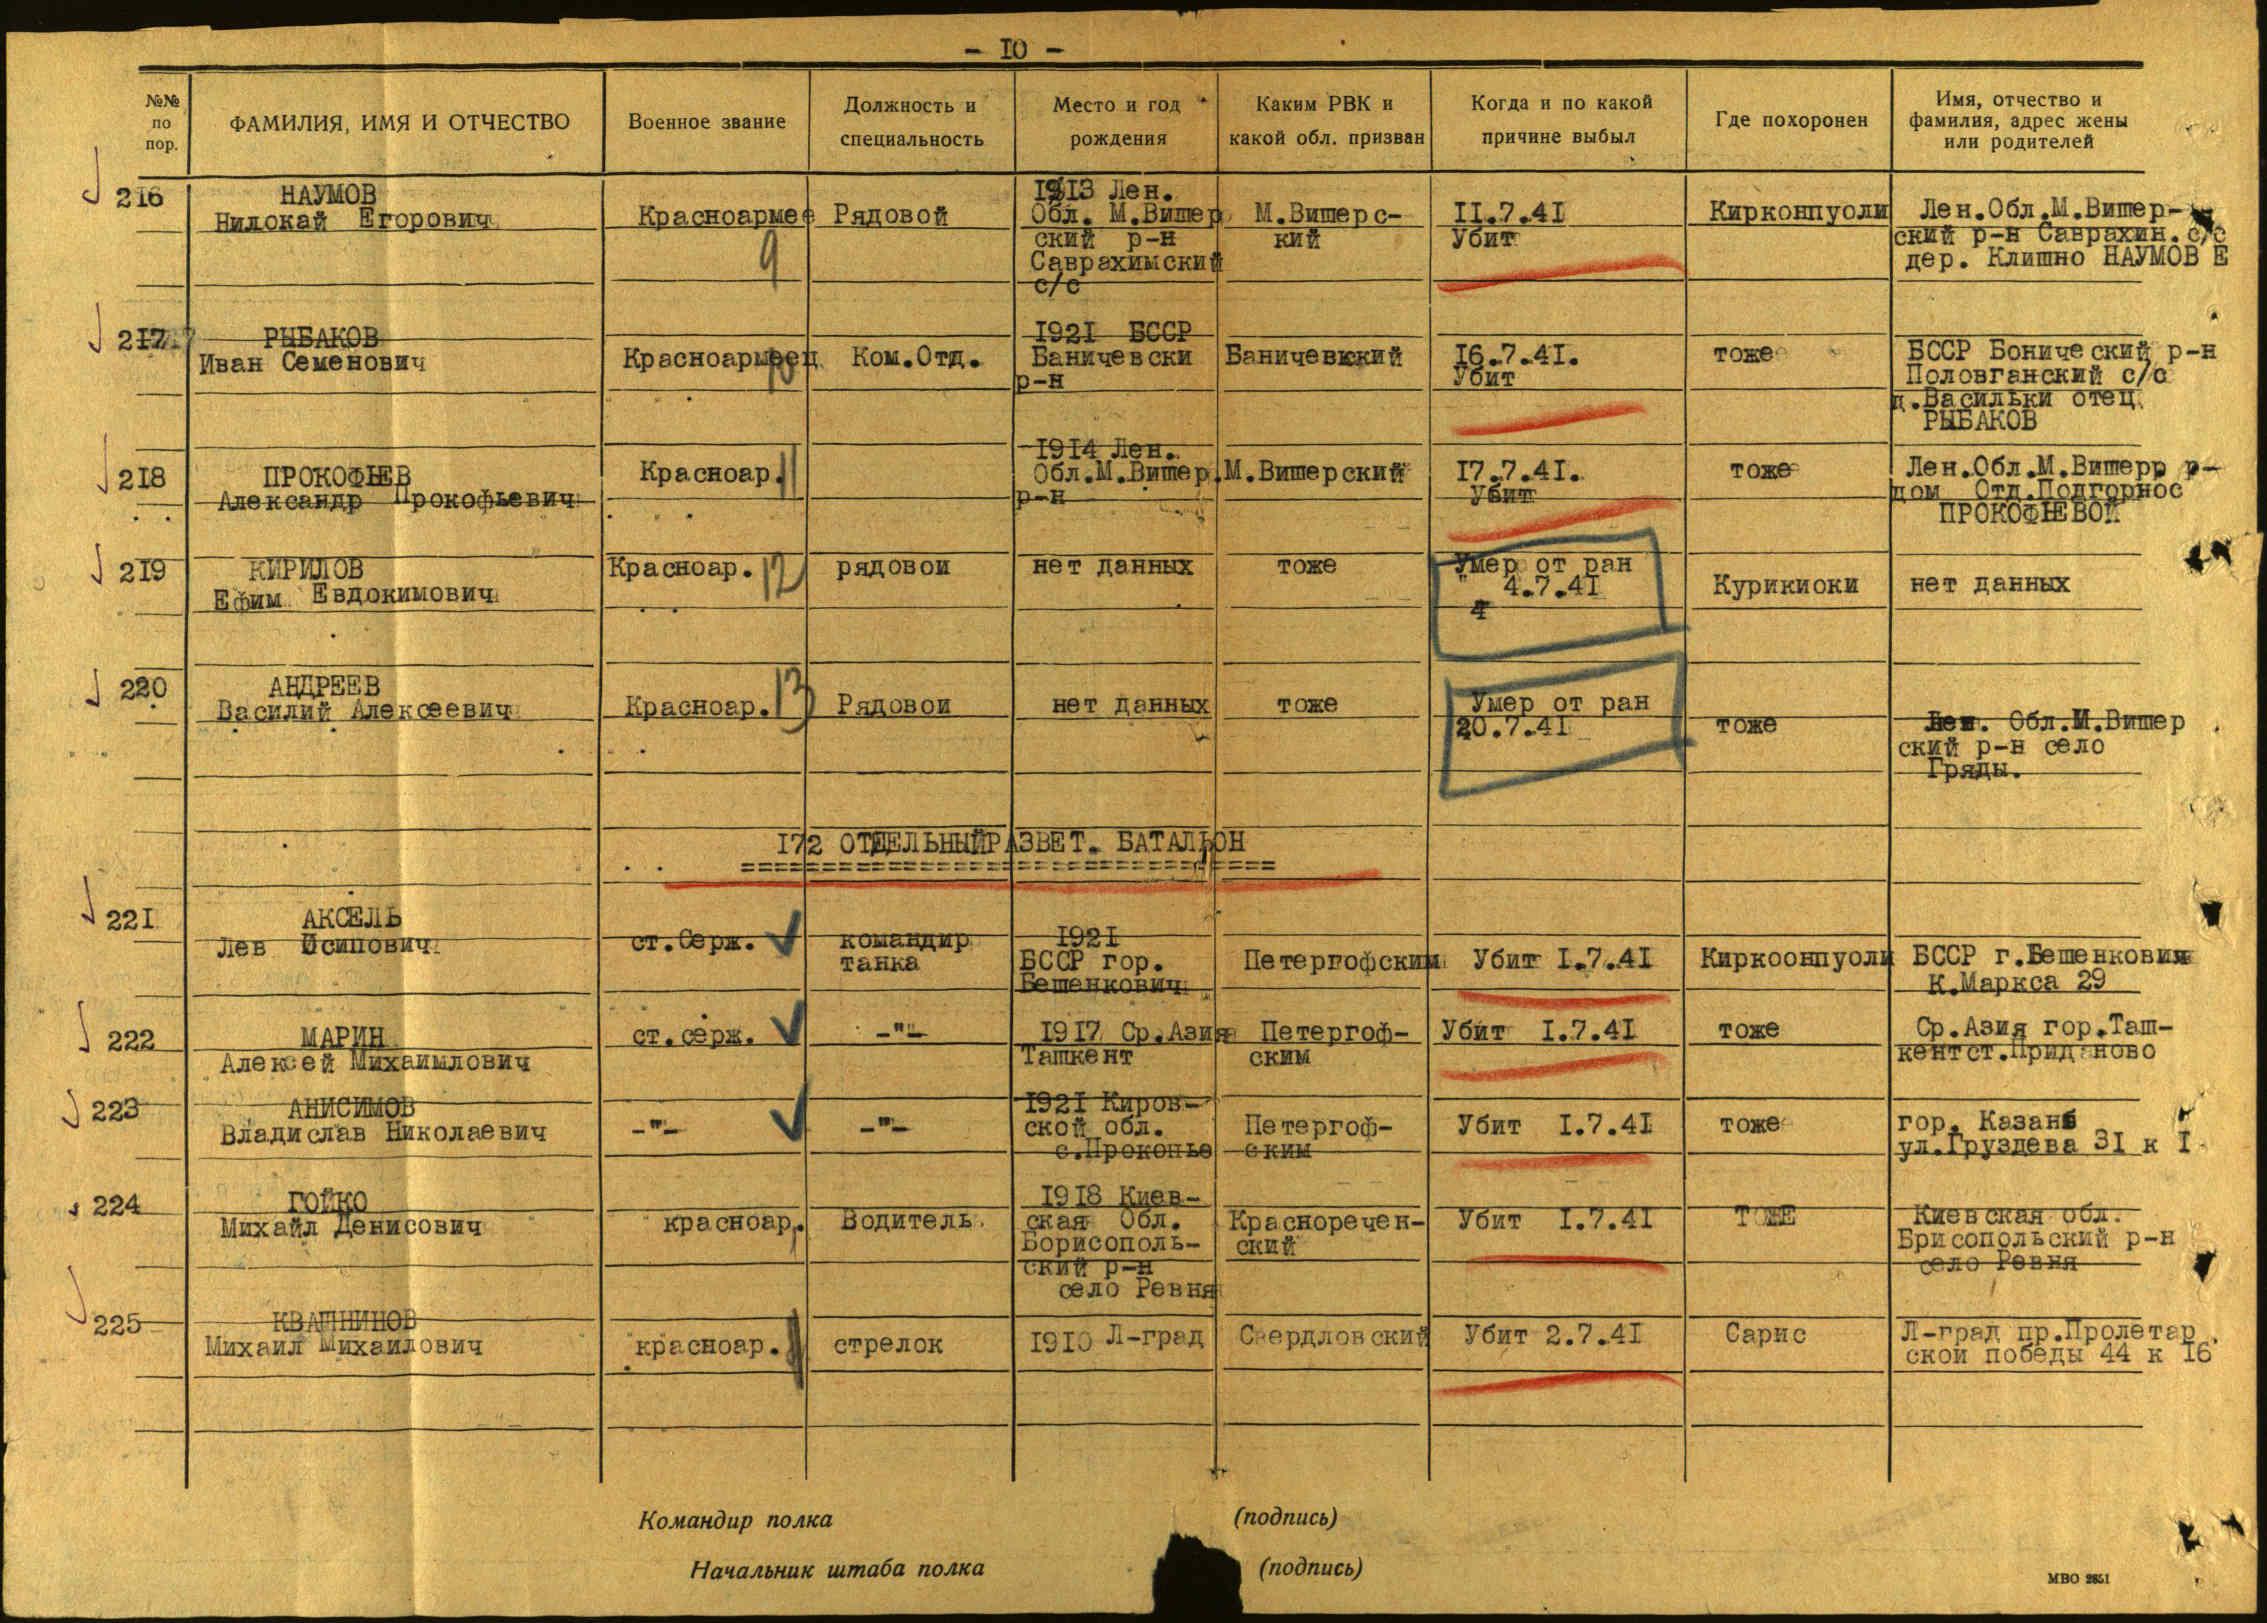 - IO -
№№
по
пор.
ФАМИЛИЯ, ИМЯ И ОТЧЕСТВО
Военное звание
Должность и
специальность
Место и год
рождения
Каким РВК и
какой обл. призван
Когда и по какой
причине выбыл
Где похоронен
Имя, отчество и
фамилия, адрес жены
или родителей
216
НАУМОВ
Нилокай Егорович
Красноармее
9
Рядовой
1913 Лен.
Обл. М.Вишер
ский р-н
Саврахимский
с/с
М.Вишерс-
кий
II.7.4I
Убит
Кирконпуоли
Лен.Обл.М.Вишер-
ский р-н Саврахин. с/с
дер. Клишно НАУМОВ Е
217
РЫБАКОВ
Иван Семенович
Красноармеец
Ком.Отд.
I92I БССР
Баничевски
р-н
Баничевский
I6.7.4I.
Убит
тоже
БССР Бонический р-н
Половганский с/с
д.Васильки отец
РЫБАКОВ
218
ПРОКОФЬЕВ
Александр Прокофьевич
Красноар.
11
I9I4 Лен.
Обл.М.Вишер.
р-н
М.Вишерский
I7.7.4I.
Убит
тоже
Лен.Обл.М.Вишерр р-
дом Отд.Подгорнос
ПРОКОФЬЕВОЙ
219
КИРИЛОВ
Ефим Евдокимович
Красноар.
12
рядовои
нет данных
тоже
Умер от ран
4.7.4I
4
Курикиоки
нет данных
220
АНДРЕЕВ
Василий Алексеевич
Красноар.
13
Рядовои
нет данных
тоже
Умер от ран
20.7.4I
тоже
Лен. Обл.М.Вишер
ский р-н село
Гряды.
I72 ОТДЕЛЬНЫЙРАЗВЕТ. БАТАЛЬОН
22I
АКСЕЛЬ
Лев Осипович
ст.Серж.
командир
танка
I92I
БССР гор.
Бешенкович
Петергофским
Убит I.7.4I
Киркоонпуоли
БССР г.Бешенковия
К.Маркса 29
222
МАРИН
Алексей Михаимлович
ст.серж.
-"-
I9I7 Ср.Азия
Ташкент
Петергоф-
ским
Убит I.7.4I
тоже
Ср.Азия гор.Таш-
кентст.Приданово
223
АНИСИМОВ
Владислав Николаевич
-"-
-"-
I92I Киров-
ской обл.
с.Прокопье
Петергоф-
ским
Убит I.7.4I
тоже
гор. Казань
ул.Груздева 3I к I
224
ГОЙКО
Михайл Денисович
красноар.
Водитель
I9I8 Киев-
ская Обл.
Борисополь-
ский р-н
село Ревня
Красноречен-
ский
Убит I.7.4I
ТОЖЕ
Киевская обл.
Брисопольский р-н
село Ревня
225
КВАШНИНОВ
Михаил Михаилович
красноар.
стрелок
I9I0 Л-град
Свердловский
Убит 2.7.4I
Сарис
Л-град пр.Пролетар
ской победы 44 к I6
Командир полка
(подпись)
Начальник штаба полка
(подпись)
МВО 2851